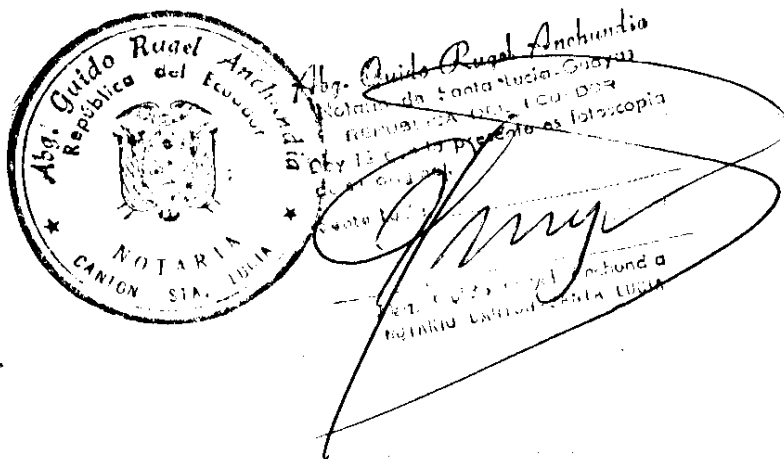 Abg. Guido Rugel Anchundia
República del Ecuador
NOTARIA
CANTON STA. LUCIA
Abg. Guido Rugel Anchundia
Notario de Santa Lucia-Guayas
REPUBLICA DEL ECUADOR
Doy fé que la presente es fotoscopia
de su original
Santa
Abg. Guido Rugel Anchundia
NOTARIO CANTON SANTA LUCIA